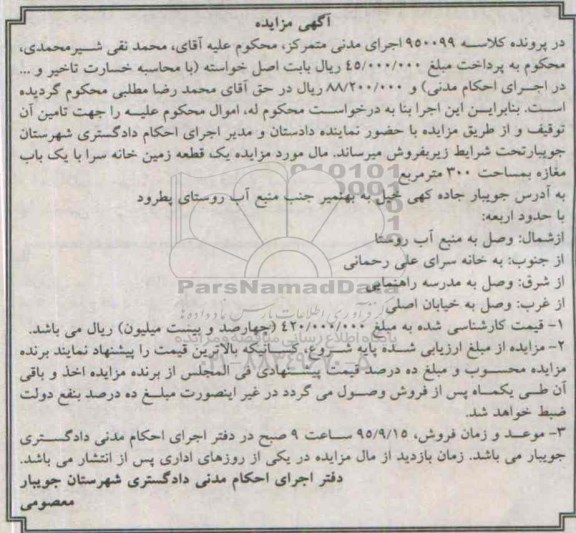 آگهی مزایده
در پرونده کلاسه ۹۵۰۰۹۹ اجرای مدنی متمرکز، محکوم علیه آقای، محمد نقی شیرمحمدی،
محکوم به پرداخت مبلغ ۴۵/۰۰۰/۰۰۰ ریال بابت اصل خواسته (با محاسبه خسارت تاخیر و ...
در اجرای احکام مدنی) و ۸۸/۲۰۰/۰۰۰ ریال در حق آقای محمد رضا مطلبی محکوم گردیده
است. بنابراین این اجرا بنا به درخواست محکوم له، اموال محکوم علیه را جهت تامین آن
توقیف و از طریق مزایده با حضور نماینده دادستان و مدیر اجرای احکام دادگستری شهرستان
جویبارتحت شرایط زیربفروش میرساند. مال مورد مزایده یک قطعه زمین خانه سرا با یک باب
مغازه بمساحت ۳۰۰ مترمربع
به آدرس جویبار جاده کهی خیل به بهنمیر جنب منبع آب روستای پطرود
با حدود اربعه:
ازشمال: وصل به منبع آب روستا
از جنوب: به خانه سرای علی رحمانی
از شرق: وصل به مدرسه راهنمایی
از غرب: وصل به خیابان اصلی
ParsNamadData
۱- قیمت کارشناسی شده به مبلغ ۴۲۰/۰۰۰/۰۰۰ (چهارصد و بیست میلیون) ریال می باشد.
۲- مزایده از مبلغ ارزیابی شده پایه شروع، کسانیکه بالاترین قیمت را پیشنهاد نمایند برنده
مزایده محسوب و مبلغ ده درصد قیمت پیشنهادی فی المجلس از برنده مزایده اخذ و باقی
آن طی یکماه پس از فروش وصول می گردد در غیر اینصورت مبلغ ده درصد بنفع دولت
ضبط خواهد شد.
۳- موعد و زمان فروش، ۹۵/۹/۱۵ ساعت ۹ صبح در دفتر اجرای احکام مدنی دادگستری
جویبار می باشد. زمان بازدید از مال مزایده در یکی از روزهای اداری پس از انتشار می باشد.
دفتر اجرای احکام مدنی دادگستری شهرستان جویبار
معصومی